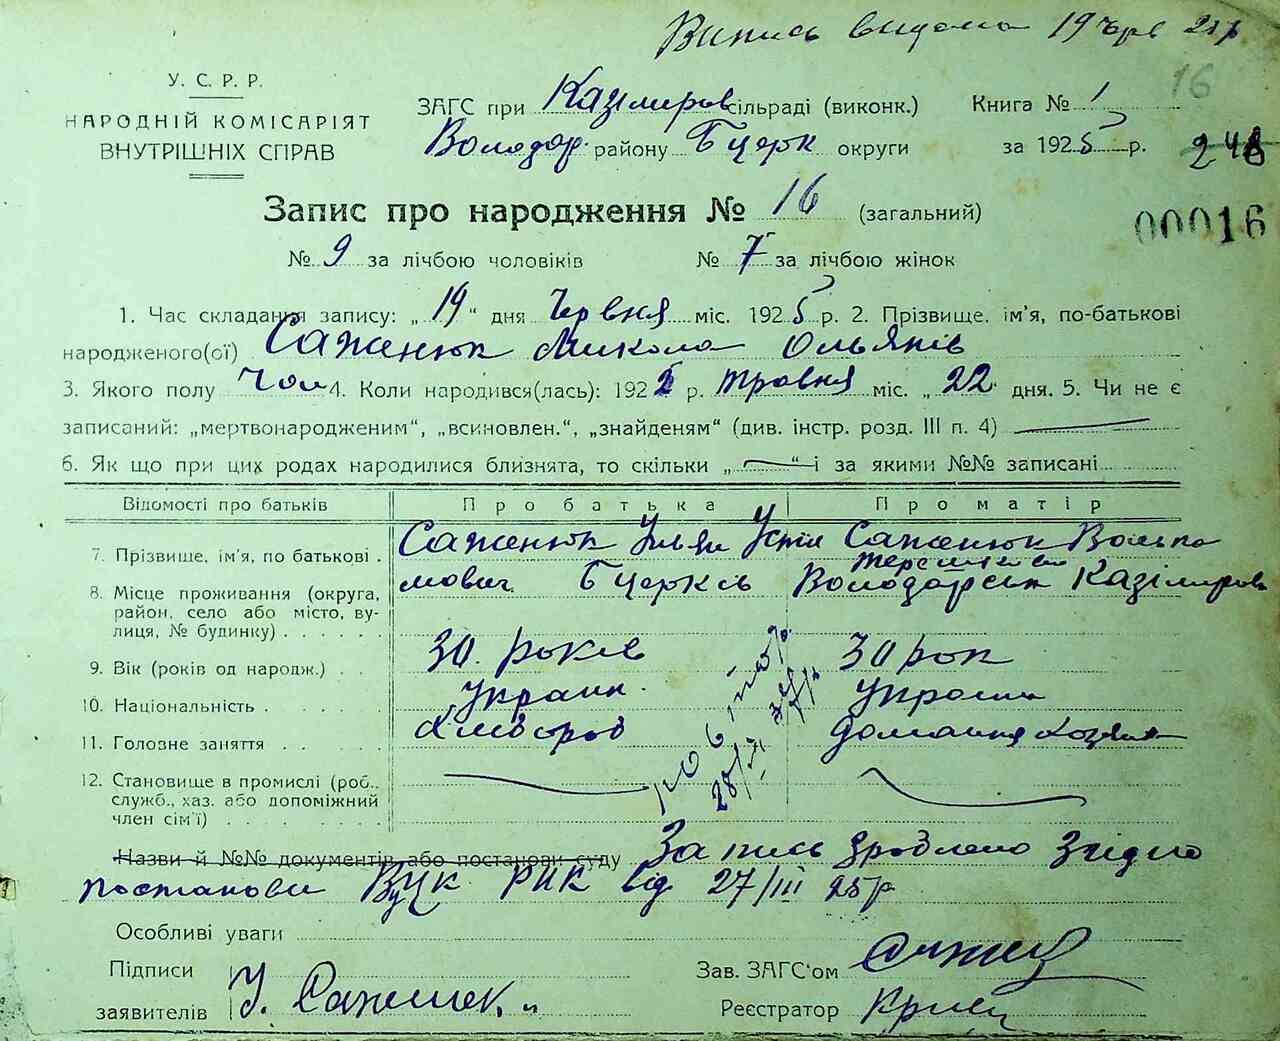 Випись видана 19 черв 25 р
У. С. Р. Р.
НАРОДНІЙ КОМІСАРІЯТ
ВНУТРІШНІХ СПРАВ
16
ЗАГС при Казімиров сільраді (виконк.) Книга № 1
Володар. району Бцерк округи за 1925 р.
248
Запис про народження № 16 (загальний)
00016
№ 9 за лічбою чоловіків № 7 за лічбою жінок
1. Час складання запису: „19" дня Червня міс. 1925 р. 2. Прізвище, ім'я, по-батькові
народженого(ої) Саженюк Микола Ольянів
3. Якого полу Чол 4. Коли народився(лась): 192 р. травня міс. „22 дня. 5. Чи не є
записаний: „мертвонародженим", „всиновлен.", „знайденям" (див. інстр. розд. III п. 4)
6. Як що при цих родах народилися близнята, то скільки „ " і за якими №№ записані
Відомості про батьків Про батька Про матір
7. Прізвище, ім'я, по батькові . Саженюк Ульян Устімович Саженюк
8. Місце проживання (округа, район, село або місто, вулиця, № будинку) . . . . . . Бцерків Володарськ Казімиров
9. Вік (років од народж.) . . 30 років 30 рок
10. Національність . . . . . Україн. Україн
11. Головне заняття . . . . Хлібороб домашня
12. Становище в промислі (роб., служб., хаз. або допоміжний член сім'ї) . . . . . . . .
Назви й №№ документів або постанови суду Запись зроблено згідно
постанови ВУЦК РНК від 27/III 25 р
Особливі уваги
Підписи
заявителів У. Саженюк
Зав. ЗАГС'ом
Реєстратор